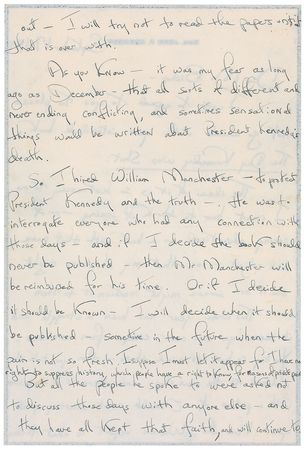 out – I will try not to read the papers until
that is over with.
As you know – it was my fear as long
ago as December – that all sorts of different and
never ending, conflicting, and sometimes sensational
things would be written about President Kennedy's
death.
So I hired William Manchester – to protect
President Kennedy and the truth –. He was to
interrogate everyone who had any connection with
those days – and if I decide the book should
never be published – then Mr Manchester will
be reimbursed for his time. Or if I decide
it should be known – I will decide when it should
be published – sometime in the future when the
pain is not so fresh. I suppose I must let it appear for I have no
right to suppress history, which people have a right to know for reasons of private pain
But all the people he spoke to were asked not
to discuss those days with anyone else – and
they have all kept that faith, and will continue to